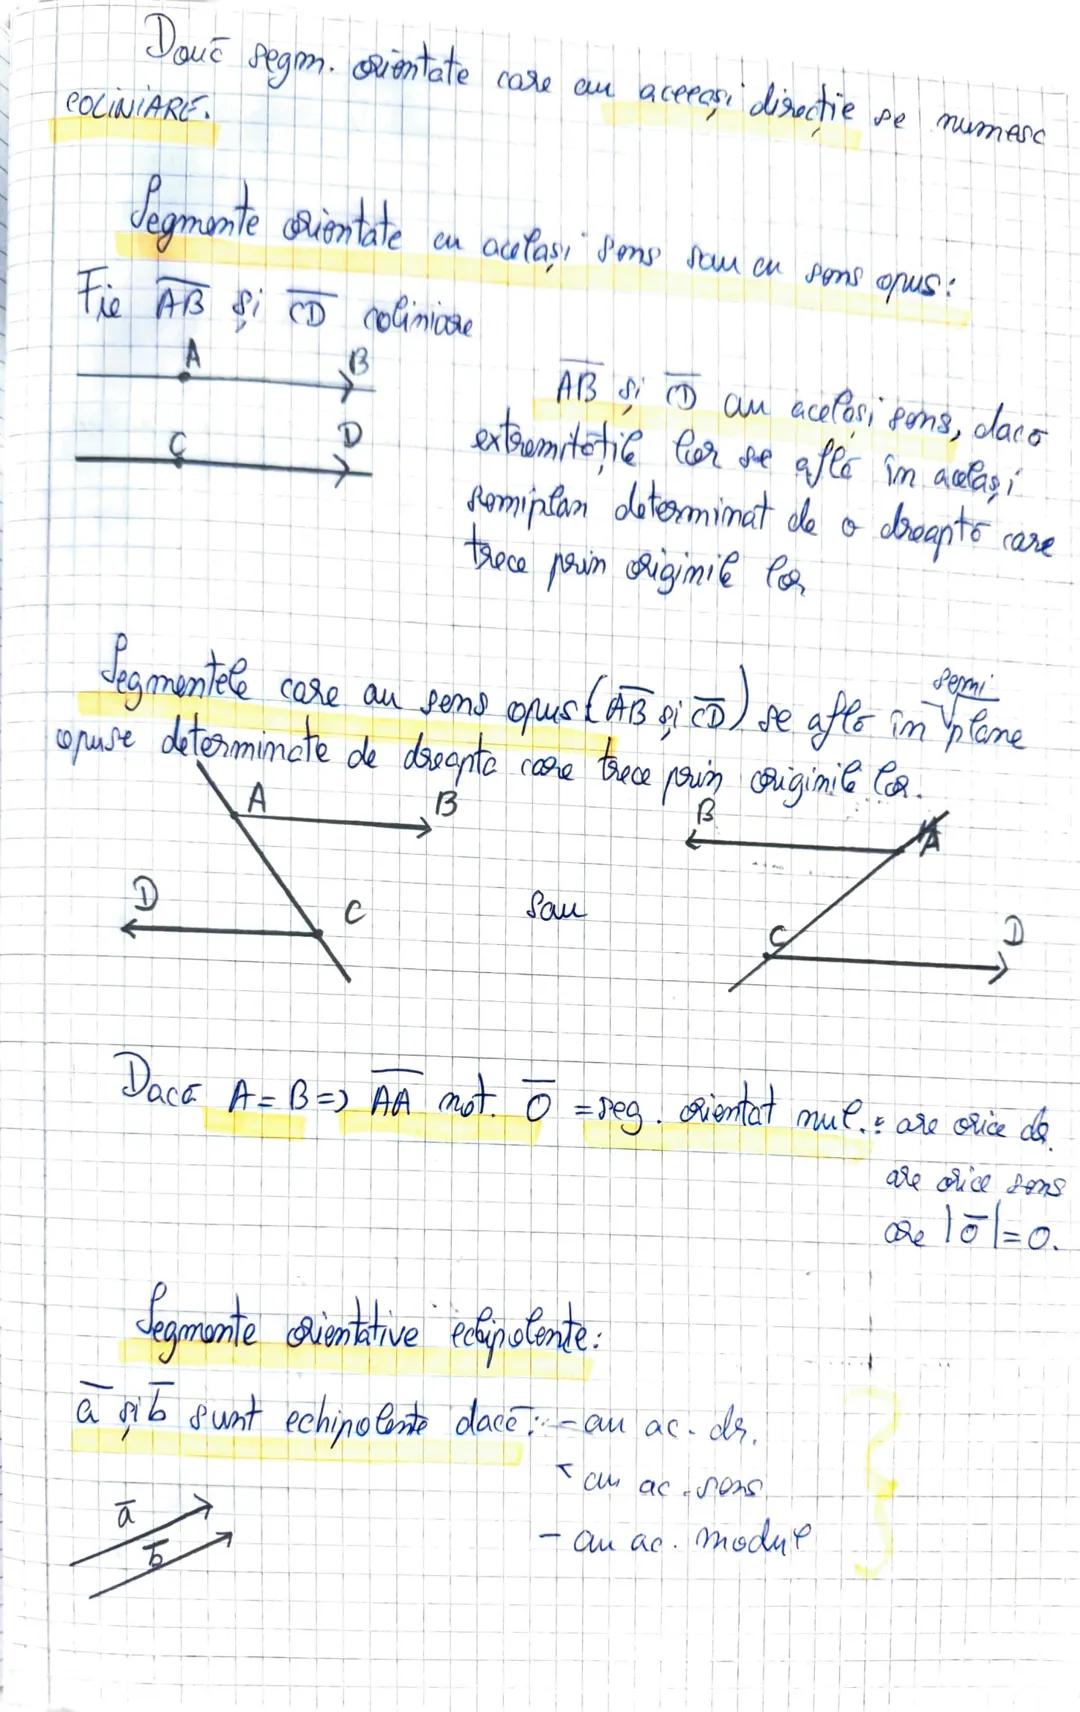 Două segm. orientate care au aceeași direcție se numesc
COLINIARE.
Segmente orientate cu același sens sau cu sens opus:
Fie A̅B̅ și C̅D̅ coliniare
A B
C D
A̅B̅ și C̅D̅ au același sens, dacă
extremitățile lor se află în același
semiplan determinat de o dreaptă care
trece prin originile lor
Segmentele care au sens opus (A̅B̅ și C̅D̅) se află în semiplane
opuse determinate de dreapta care trece prin originile lor.
A B B A
D C sau C D
Dacă A = B => A̅A̅ not. 0̅ = seg. orientat nul.: are orice dr.
are orice sens
are |0̅| = 0.
Segmente orientative echipolente:
a̅ și b̅ sunt echipolente dacă: - au ac. dr.
- au ac. sens
- au ac. modul
a̅
b̅